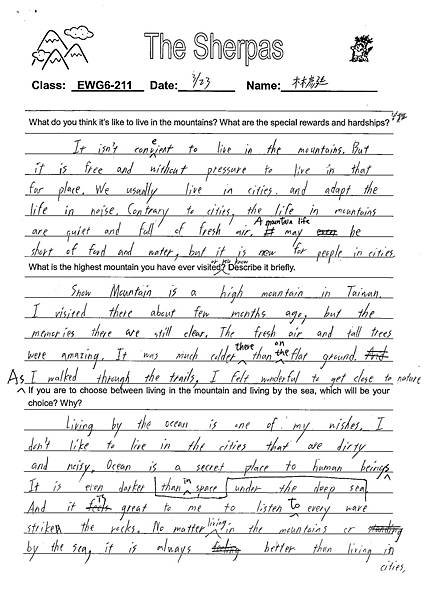 The Sherpas
Class: EWG6-211 Date: 3/23 Name: 林
What do you think it's like to live in the mountains? What are the special rewards and hardships?
It isn't convient e to live in the mountains. But
it is free and without pressure to live in that
far place. We usually live in cities. and adapt the
life in noise. Contrary to cities, the life in mountains
are quiet and full of fresh air. A mountain life may be
short of food and water, but it is new for people in cities.
What is the highest mountain you have ever visited or you know? Describe it briefly.
Snow Mountain is a high mountain in Taiwan.
I visited there about few months ago, but the
memories there are still clear. The fresh air and tall trees
were amazing. It was much colder there than on the flat ground. And
As I walked through the trails, I felt wonderful to get close to nature
If you are to choose between living in the mountain and living by the sea, which will be your
choice? Why?
Living by the ocean is one of my wishes. I
don't like to live in the cities that are dirty
and noisy. Ocean is a secret place to human beings.
It is even darker than in space under the deep sea
And it is great to me to listen to every wave
striken the rocks. No matter living in the mountains or standing
by the sea, it is always feeling better than living in
cities.